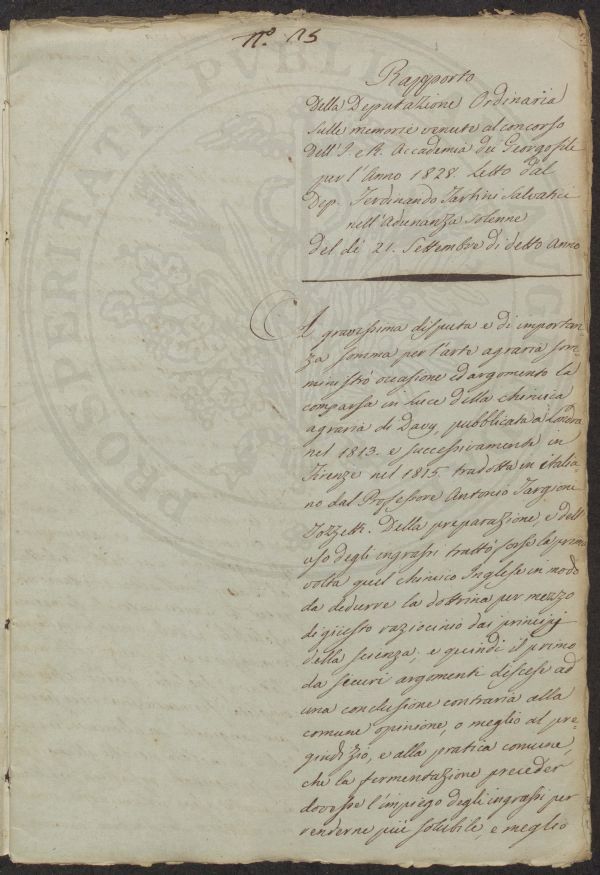 N.º 15
Rapporto
Della Deputazione Ordinaria
sulle memorie venute al concorso
dell'I. e R. Accademia dei Georgofili
per l'Anno 1828. Letto dal
Dep. Ferdinando Tartini Salvatici
nell'Adunanza Solenne
del dì 21. Settembre di detto Anno
A gravissima disputa e di importan-
za somma per l'arte agraria som-
ministrò occasione ed argomento la
comparsa in luce della chimica
agraria di Davy, pubblicata a Londra
nel 1813. e successivamente in
Firenze nel 1815. tradotta in italia
no dal Professore Antonio Targioni
Tozzetti. Della preparazione, e dell'
uso degli ingrassi trattò forse la prima
volta quel chimico Inglese in modo
da dedurre la dottrina per mezzo
di giusto raziocinio dai principj
della scienza; e quindi il primo
da securi argomenti discese ad
una conclusione contraria alla
comune opinione, o meglio al pre-
giudizio, e alla pratica comune,
che la fermentazione preceder
dovesse l'impiego degli ingrassi per
renderne più solubile, e meglio
PROSPERITATI PUBLICAE